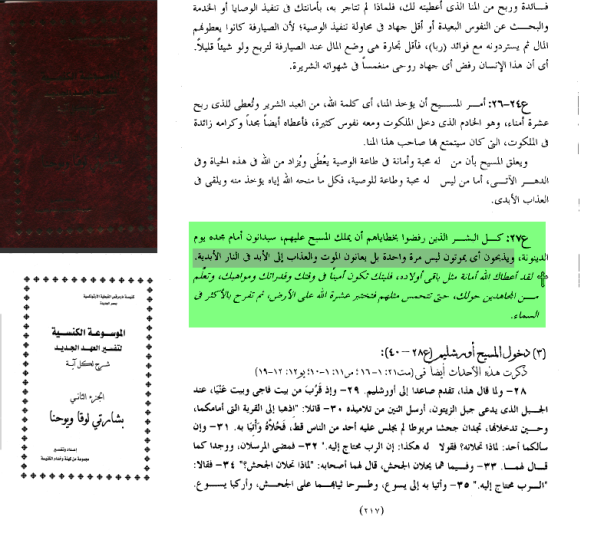 فـائدة وربح من المنا الذى أعطيته لك، فلماذا لم تتاجر به، بأمانتك فى تنفيذ الوصايا أو الخدمة
والبحث عن النفوس البعيدة أو أقل جهاد فى محاولة تنفيذ الوصية؛ لأن الصيارفة كانوا يعطونهم
المال ثم يستردونه مع فوائد (ربا)، فأقل تجارة هى وضع المال عند الصيارفة لتربح ولو شيئًا قليلاً.
أى أن هذا الإنسان رفض أى جهاد روحى منغمسًا فى شهواته الشريرة.
ع٢٤-٢٦: أمـر المسـيح أن يؤخذ المنا، أى كلمة الله، من العبد الشرير وتُعطى للذى ربح
عشرة أمناء، وهو الخادم الذى دخل الملكوت ومعه نفوس كثيرة، فأعطاه أيضًا مجدًا وكرامه زائدة
فى الملكوت، التى كان سيتمتع بها صاحب هذا المنا.
ويعلق المسيح بأن من له محبة وأمانة فى طاعة الوصية يعُطَى ويُزاد من الله فى هذه الحياة وفى
الدهـر الآتـى، أما من ليس له محبة وطاعة للوصية، فكل ما منحه الله إياه يؤخذ منه ويلقى فى
العذاب الأبدى.
ع٢٧: كـل البشـر الذين رفضوا بخطاياهم أن يملك المسيح عليهم، سيدانون أمام مجده يوم
الدينونة، ويذبحون أى يموتون ليس مرة واحدة بل يعانون الموت والعذاب إلى الأبد فى النار الأبدية.
لقد أعطاك الله أمانة مثل باقى أولاده، فليتك تكون أمينًا فى وقتك وقدراتك ومواهبك، وتعلَّم
مـن المجاهدين حولك، حتى تتحمس مثلهم فتختبر عشرة الله على الأرض، ثم تفرح بالأكثر فى
السماء.
(٣) دخول المسيح أورشليم (ع٢٨-٤٠):
ذكرت هـذه الأحداث أيضًا فى (مت٢١: ١-١٦؛ مر١١: ١-١٠؛ يو١٢: ١٢-١٩)
٢٨- ولما قال هذا، تقدم صاعدا إلى أورشليم. ٢٩- وإذ قَرُبَ من بيت فاجى وبيت عَنْيَا، عند
الجـبل الذى يدعى جبل الزيتون، أرسل اثنين من تلاميذه ٣٠- قائلا: "اِذهبا إلى القرية التى أمامكما،
وحـين تدخلانها، تجدان جحشا مربوطا لم يجلس عليه أحد من الناس قط، فَحُلاَّهُ وَأْتِيَا به. ٣١- وإن
سألكما أحد: لماذا تحلانه؟ فقولا له هكذا: إن الرب محتاج إليه." ٣٢- فمضى المرسلان، ووجدا كما
قـال لهمـا. ٣٣- وفـيما هما يحلان الجحش، قال لهما أصحابه: "لماذا تحلان الجحش؟" ٣٤- فقالا:
"الـرب محتاج إليه." ٣٥- وأتيا به إلى يسوع، وطـرحا ثيابهمـا على الجحش، وأركبا يسـوع.
(٢١٧)
الموسوعة الكنسية
لتفسير العهد الجديد
شرح لكل آية
الجزء الثانى
بشارتى لوقا ويوحنا